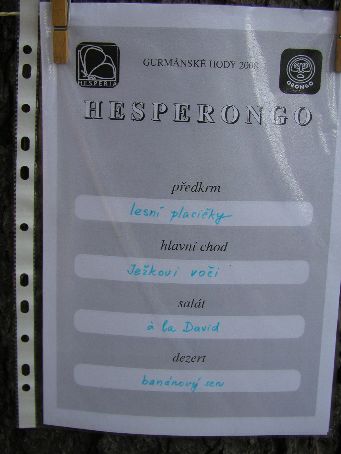 GURMÁNSKÉ HODY 2008
HESPERIA
ORONGO
HESPERONGO
předkrm
lesní placičky
hlavní chod
Ježkovi voči
salát
à la David
dezert
banánový sen